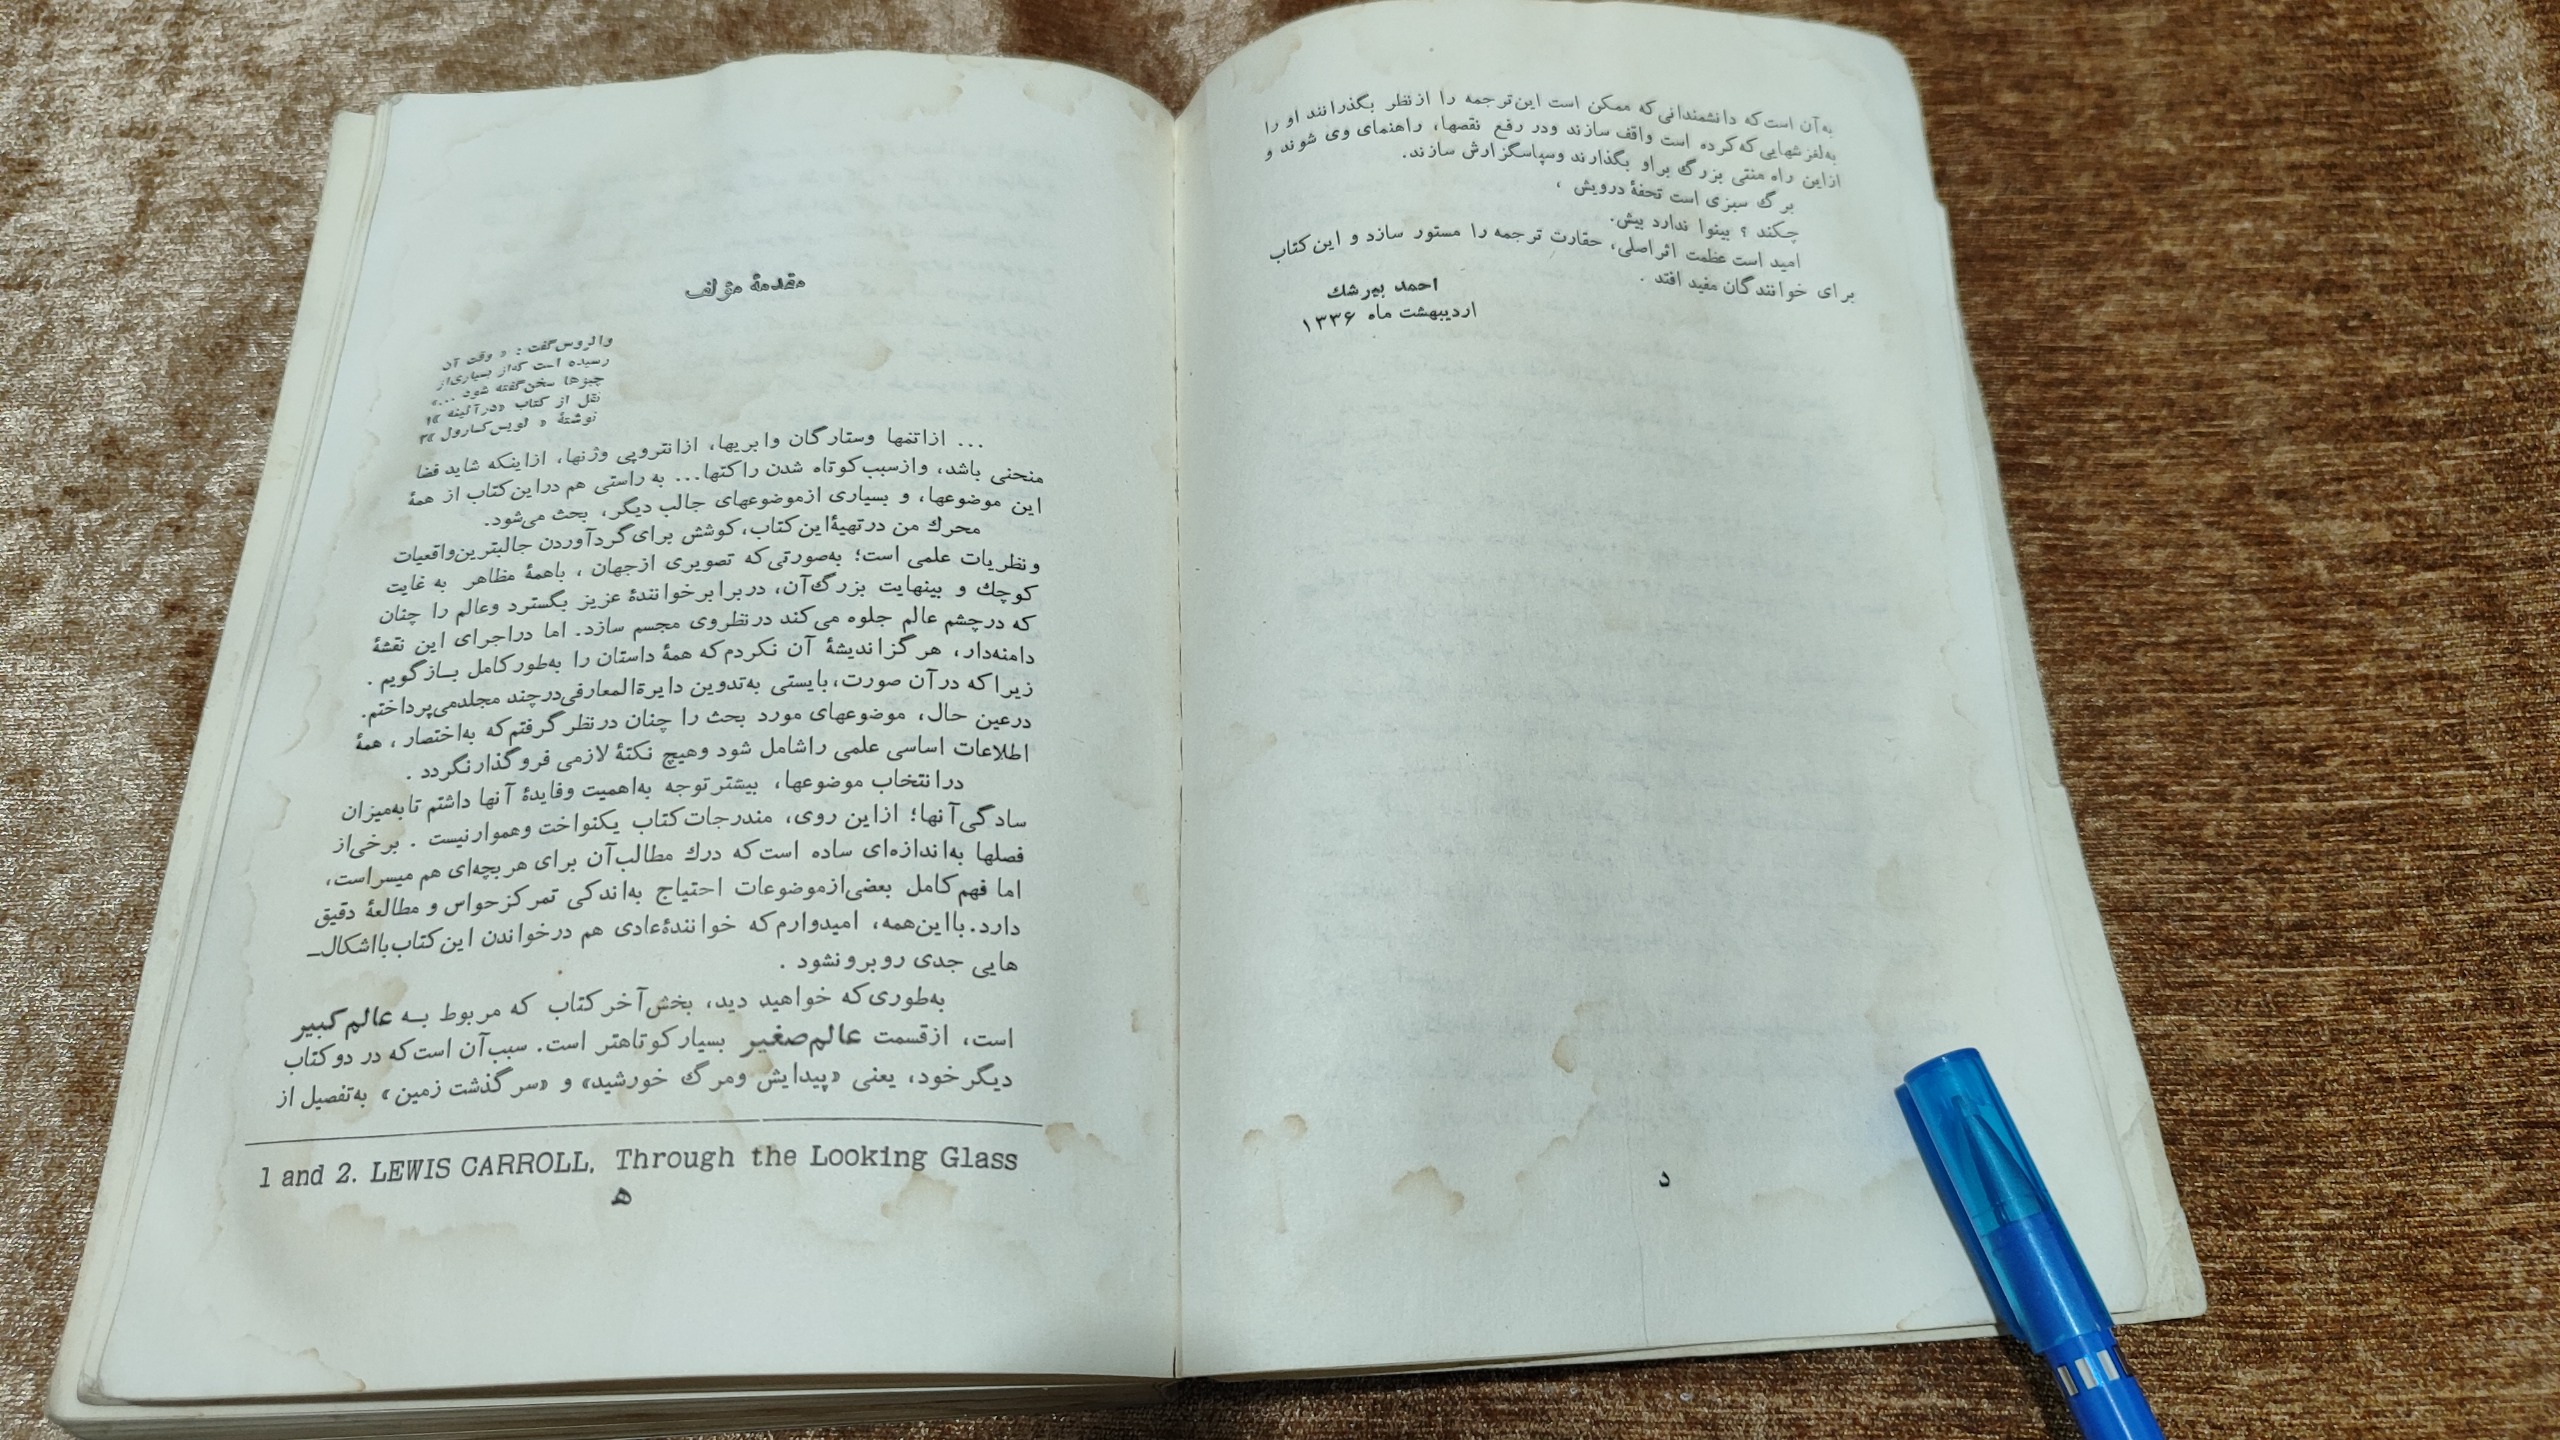 به‌آن است‌که دانشمندانی‌که ممکن است این‌ترجمه را ازنظر بگذرانند او را
به‌لغزشهایی‌که‌کرده است واقف سازند ودر رفع نقصها، راهنمای وی شوند و
ازاین راه منتی بزرگ براو بگذارند وسپاسگزارش سازند.
برگ سبزی است تحفهٔ درویش ،
چکند ؟ بینوا ندارد بیش.
امید است عظمت اثراصلی، حقارت ترجمه را مستور سازد و این‌کتاب
برای خوانندگان مفید افتد .
احمد بیرشك
اردیبهشت ماه ۱۳۳۶
د
مقدمهٔ مؤلف
والروس‌گفت : « وقت آن
رسیده است که‌از بسیاری‌از
چیزها سخن‌گفته شود ...»
نقل از کتاب «درآئینه »۱
نوشتهٔ « لویس‌کارول »۲
... ازاتمها وستارگان وابریها، ازانتروپی وژنها، ازاینکه شاید فضا
منحنی باشد، وازسبب‌کوتاه شدن راکتها... به راستی هم دراین‌کتاب از همهٔ
این موضوعها، و بسیاری ازموضوعهای جالب دیگر، بحث می‌شود.
محرك من درتهیهٔ‌این‌کتاب،کوشش برای‌گردآوردن جالبترین‌واقعیات
ونظریات علمی است؛ به‌صورتی‌که تصویری ازجهان ، باهمهٔ مظاهر به غایت
کوچك و بینهایت بزرگ‌آن، دربرابرخوانندهٔ عزیز بگسترد وعالم را چنان
که درچشم عالم جلوه می‌کند درنظروی مجسم سازد. اما دراجرای این نقشهٔ
دامنه‌دار، هرگزاندیشهٔ آن نکردم‌که همهٔ داستان را به‌طورکامل بــازگویم .
زیراکه درآن صورت،بایستی به‌تدوین دایرةالمعارفی‌درچند مجلدمی‌پرداختم.
درعین حال، موضوعهای مورد بحث را چنان درنظرگرفتم‌که به‌اختصار ، همهٔ
اطلاعات اساسی علمی راشامل شود وهیچ نکتهٔ لازمی فروگذارنگردد .
درانتخاب موضوعها، بیشترتوجه به‌اهمیت وفایدهٔ آنها داشتم تابه‌میزان
سادگی‌آنها؛ ازاین روی، مندرجات‌کتاب یکنواخت وهموارنیست . برخی‌از
فصلها به‌اندازه‌ای ساده است‌که درك مطالب‌آن برای هربچه‌ای هم میسراست،
اما فهم‌کامل بعضی‌ازموضوعات احتیاج به‌اندکی تمرکزحواس و مطالعهٔ دقیق
دارد.بااین‌همه، امیدوارم‌که خوانندهٔ‌عادی هم درخواندن این‌کتاب‌بااشکال‌ـ
هایی جدی روبرونشود .
به‌طوری‌که خواهید دید، بخش‌آخرکتاب که مربوط بــه عالم‌کبیر
است، ازقسمت عالم‌صغیر بسیارکوتاهتر است. سبب‌آن است‌که در دوکتاب
دیگرخود، یعنی «پیدایش ومرگ خورشید» و «سرگذشت زمین» به‌تفصیل از
1 and 2. LEWIS CARROLL, Through the Looking Glass
ه